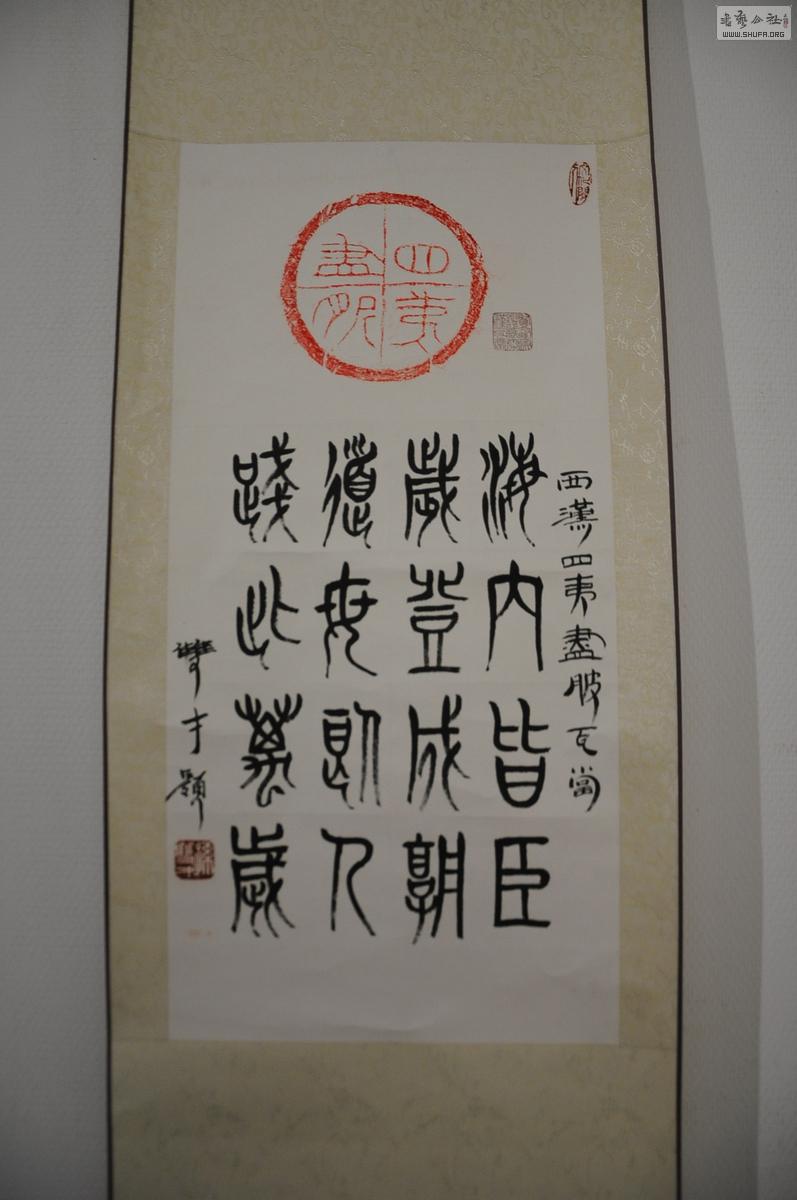 書藝公社
WWW.SHUFA.ORG
四夷
盡服
西漢四夷盡服瓦當
海内皆臣
歲登成孰
道毋飢人
踐此萬歲
才題